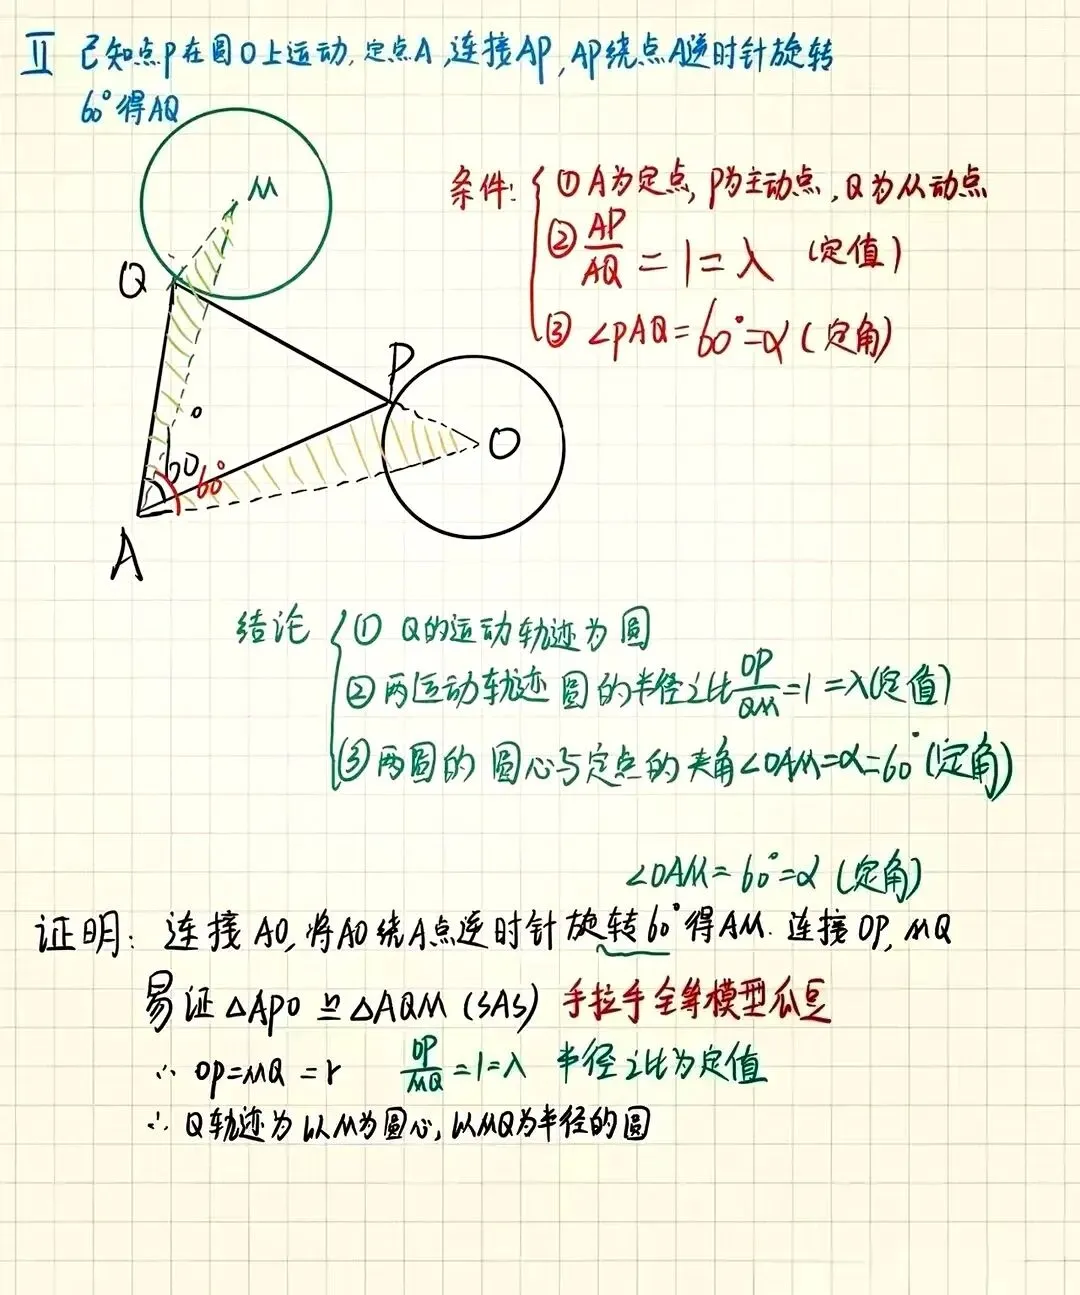 Ⅱ 已知点P在圆O上运动,定点A,连接AP,AP绕点A逆时针旋转
60°得AQ
M
条件: ①A为定点,P为主动点,Q为从动点
②AP/AQ=1=λ (定值)
Q
③∠PAQ=60°=α(定角)
P
O
60°
60°
A
结论 ①Q的运动轨迹为圆
②两运动轨迹圆的半径之比OP/QM=1=λ(定值)
③两圆的圆心与定点的夹角∠OAM=α=60°(定角)
∠OAM=60°=α(定角)
证明: 连接AO,将AO绕A点逆时针旋转60°得AM.连接OP,MQ
易证△APO≌△AQM(SAS) 手拉手全等模型瓜豆
∴OP=MQ=r OP/MQ=1=λ 半径之比为定值
∴Q轨迹为以M为圆心,以MQ为半径的圆